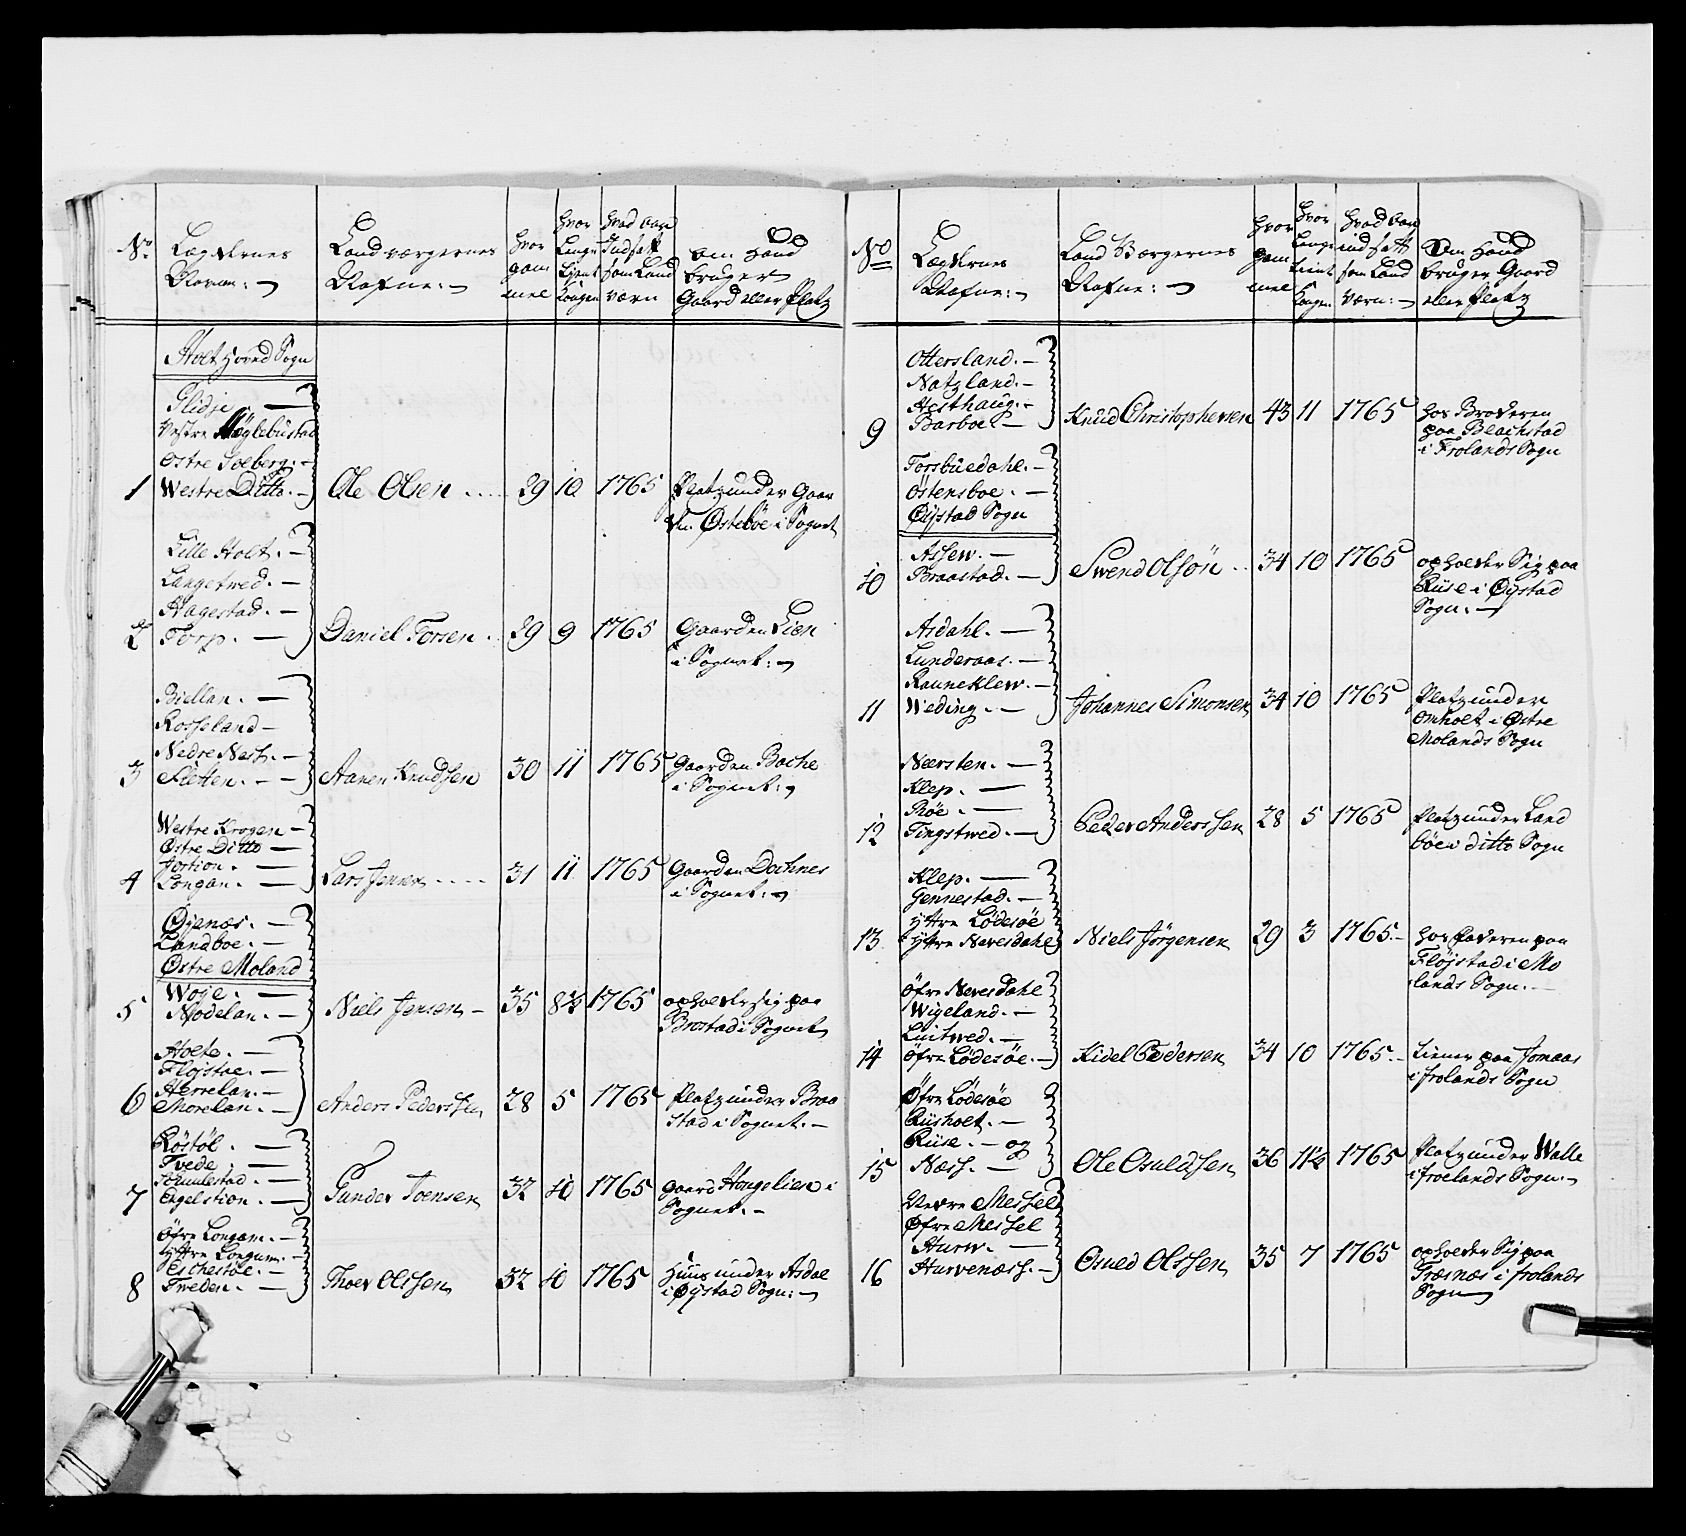 No.
Lægdernes
Nafne:
Landværgernes
Nafne:
hvor
gam
mel
hvor
Længe
tient
Kongen
hvad Aar
Indsatt
som Land
værn
Om Hand
bruger
Gaard eller Platz
Holt Hoved Sogn
Glidje
Vestre Møglebustad
Ostre Soeberg.
1 Westre Ditto. Ole Olsen 29 10 1765 Platz under Gaar
den Østebøe i Sognet
Lille Holt.
Langetwed.
Hagestad.
2 Torp. Daniel Torsen 29 9 1765 Gaarden Lien
i Sognet:
Biellan.
Rosseland
Nedre Næss.
3 Sletten. Aanen Knudsen 30 11 1765 Gaarden Bache
i Sognet:
Westre Krogen
Østre Ditto
Jostion.
4 Longan. Lars Jensen 31 11 1765 Gaarden Dochnes
i Sognet:
Øjenæs.
Landboe.
Østre Moland
Woje.
5 Nodelan. Niels Jensen 35 8½ 1765 opholder sig paa
Brostad i Sognet
Holte.
Fløjstae.
Herrelan.
6 Morelan. Anders Pederssen 28 5 1765 Platz under Braa
stad i Sognet.
Røstøl.
Tvede
7 Engelstion. Gunder Toensen 32 10 1765 gaard Hougelien i
Sognet.
Øfre Longam.
Yttre Longum.
Eschestøe.
8 Tweden. Thoer Olssen 32 10 1765 Huus under Asdal
i Øystad Sogn:
No
Lægdernes
Nafne:
Land Værgernes
Nafne:
hvor
gam
mel
hvor
Længe
tient
Kongen
hvad Aar
indsatt
som Land
værn:
Om Hand
bruger Gaard
eller Platz
Ottersland.
Natzland.
Hesthaug.
9 Barboe Knud Christophersen 43 11 1765 hos Broderen
paa Blachstad
i Frolands Sogn
Torsbuedahl.
Østensboe.
Øystad Sogn
Assew.
10 Braastad. Swend Olsön 34 10 1765 opholder Sig paa
Riise i Øystad
Sogn.
Asdahl.
Lunderaas.
Rauneklew.
11 Weding. Johannes Simonsen 34 10 1765 Platz under
Omholt i Østre
Molands Sogn
Nærsten.
Klep.
Røe.
12 Tingstwed. Peder Anderssen 28 5 1765 Platz under Land
böe i ditto Sogn
Klep.
Gennestad.
Yttre Lødesøe
13 Yttre Nævesdahl Niels Jörgensen 29 3 1765 hos Faderen paa
Fløjstad i Mo
lands Sogn.
Øfre Nævesdahl
Wigeland.
Luitwed.
14 Øfre Lødesøe. Kidel Pedersen 34 10 1765 tiener paa Jomaas
i frolands Sogn
Øfre Lødesøe
Riisholt.
Riise. og
15 Næss. Ole Osuldsen 36 11½ 1765 Platz under Walle
i froelands Sogn:
Nedre Messel
Øfre Messel
Hurw.
16 Hurvenæss. Osuld Olssen 35 7 1765 opholder Sig paa
Træsnæs i frolands
Sogn